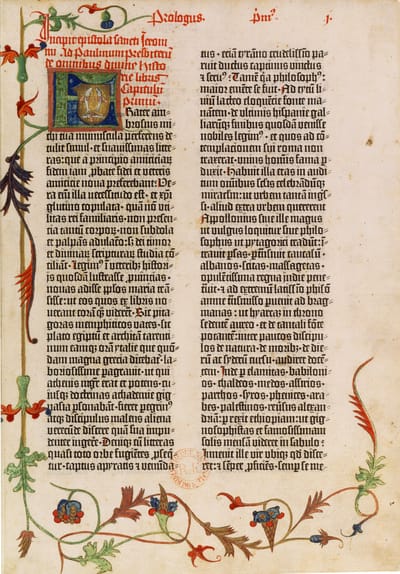 Prologus. Pm⁹. 1.
Incipit epistola sancti iheroni
mi ad Paulinum presbiterum
de omnibus divine histo
rie libris.
Capitulū
primū.
Frater am-
brosius tua
michi munuscula perferens de-
tulit simul et suavissimas litte-
ras: que a principio amiciciarū
fidem iam pbate fidei et veteris
amicicie nova preferebant. Ve-
ra eni illa necessitudo est et xpi
glutino copulata: quā nō vtili-
tas rei familiaris, non presen-
tia tantū corporū, non subdola
et palpans adulatio: sed dei timor
et divinarum scripturarum studia con-
ciliant. Legimus in veteribus histo-
ris quosdā lustrasse provincias:
novos adisse plos maria trās-
isse: ut eos quos ex libris no-
verant corā q3 viderēt. Sic pita-
goras memphiticos vates. sic
plato egiptū et archita tarenti-
num eamq3 orā ytalie que quō-
dam magna grecia dicebat, la-
boriosissime peragravit: ut qui
athenis mgr erat et potens cui-
usq3 doctrinas achademie gig-
nasia psonabāt, fieret peregrin⁹
atq3 discipulus malens aliena
verecūde discere quā sua impu-
denter ingere. Deniq3 cū litteras
quasi toto orbe fugiētes pseq-
tur, captus a pyratis et venūda-
tus: etiam tyranno crudelissimo pa-
ruit ductus captivus vinctus
et servus: Tamen quia philosophus:
maior emēte se fuit. Ad ty tū li-
viū lacteo eloquēcie fonte ma-
nātem: de ultimis hispanie gal-
liarūq3 finibus quosdā venisse
nobiles legimus: et quos ad cō-
templacionem sui roma non
traxerat: unius hominis fama p-
duxit. Habuit illa etas in audi-
tum omnibus seclis celebrādūq3
miraclm: ut urbem tantā ingres-
si: aliud extra urbem quererent.
Appollonius sive ille magus
ut vulgus loquitur sive philo-
sophus ut pytagorici tradūt: in-
travit psas, ptransivit caucasū
albanos, scitas, massagetas,
opulētissima regna indie pene-
travit: et ad extremū latissimo phison
amne transmisso puenit ad brag-
manas: ut hyarcam in throno
sedentē aureo et de tantali fonte
potantē: inter paucos discipu-
los de natura, de moribus, de dier-
rum ac siderum cursu, audiret docē-
tem. Inde per elamitas, babiloni-
os, chaldeos, medos, assirios,
parthos, syros, phenices, ara-
bes, palestinos, reversus alexan-
driā: perrexit ethiopiam: ut gig-
nosophistas et famosissimam
solis mensā videret in sabulo:
Invenit ille vir ubiq3 qd disce-
ret: et semper pficiens, semper se me-